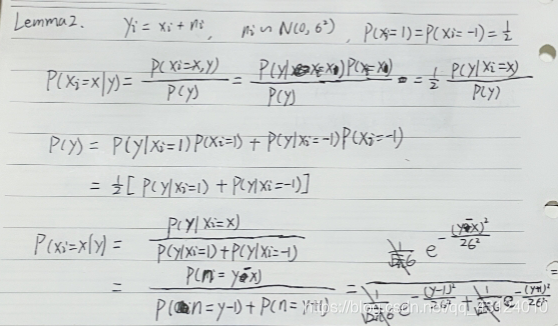 Lemma2. yi = xi + ni, ni ~ N(0, 6²), P(xi=1) = P(xi=-1) = 1/2
P(xi=x|y) = P(xi=x,y) / P(y) = P(y|xi=x)P(xi=x) / P(y) = 1/2 P(y|xi=x) / P(y)
P(y) = P(y|xi=1)P(xi=1) + P(y|xi=-1)P(xi=-1)
= 1/2 [P(y|xi=1) + P(y|xi=-1)]
P(xi=x|y) = P(y|xi=x) / P(y|xi=1) + P(y|xi=-1)
= P(n=y-x) / P(n=y-1) + P(n=y+1) = 1/√2π6 e^-(y-x)²/26² / 1/√2π6 e^-(y-1)²/26² + 1/√2π6 e^-(y+1)²/26²